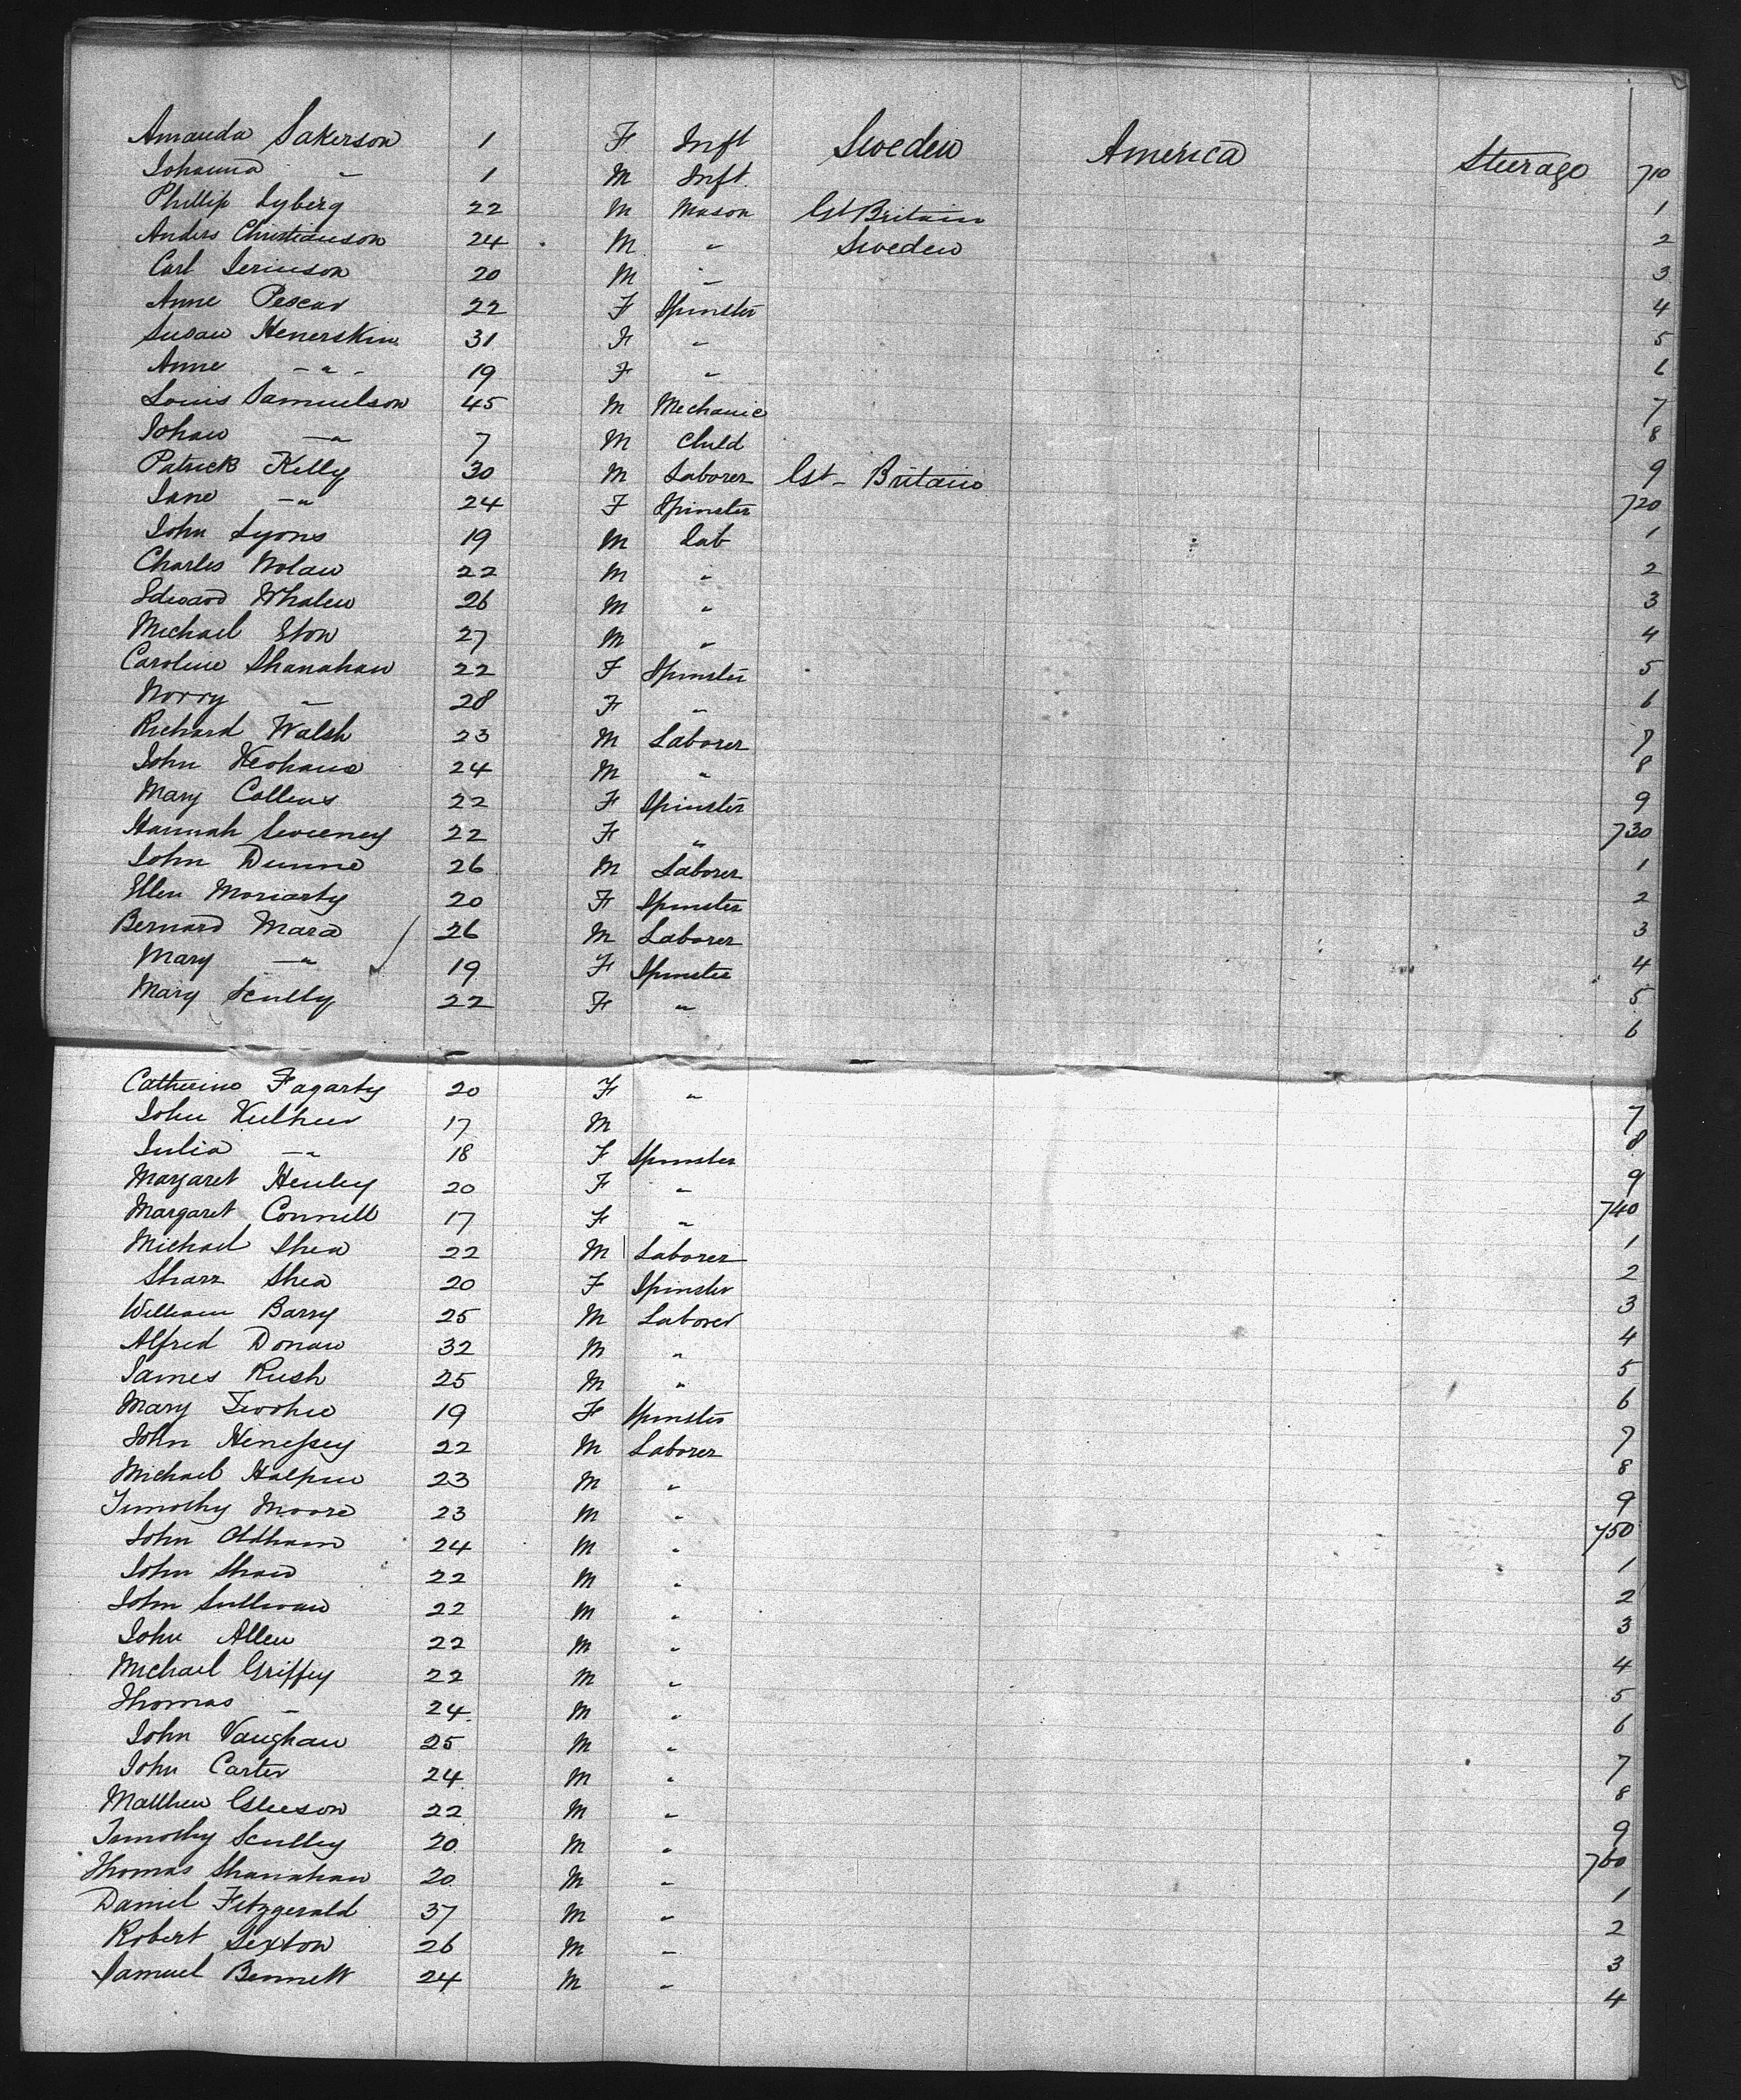 Amanda Sakerson 1 F Inft Sweden America Steerage 710
Johanna " 1 M Inft. 1
Phillip Lyberg 22 M Mason Gt Britain 2
Anders Christianson 24 M " Sweden 3
Carl 20 M " 4
Anne Pescar 22 F Spinster 5
Susan Henerskin 31 F " 6
Anne " 19 F " 7
Louis Samuelson 45 M Mechanic 8
Johan " 7 M Child 9
Patrick Kelly 30 M Laborer Gt Britain 720
Jane " 24 F Spinster 1
John Lyons 19 M Lab 2
Charles Nolan 22 M " 3
Edward Whalen 26 M " 4
Michael Ston 27 M " 5
Caroline Shanahan 22 F Spinster 6
Norry " 28 F " 7
Richard Walsh 23 M Laborer 8
John Keohane 24 M " 9
Mary Collens 22 F Spinster 730
Hannah Sweeney 22 F " 1
John Dunne 26 M Laborer 2
Ellen Moriarty 20 F Spinster 3
Bernard Mara 26 M Laborer 4
Mary " 19 F Spinster 5
Mary Scully 22 F " 6
Catherine Fagarty 20 F " 7
John 17 M 8
Julia " 18 F Spinster 9
Margaret Henley 20 F " 740
Margaret Connell 17 F " 1
Michael Shea 22 M Laborer 2
Shea 20 F Spinster 3
William Barry 25 M Laborer 4
Alfred Donan 32 M " 5
James Rush 25 M " 6
Mary Twohie 19 F Spinster 7
John Henessey 22 M Laborer 8
Michael Halpin 23 M " 9
Timothy Moore 23 M " 750
John Oldham 24 M " 1
John Shaw 22 M " 2
John Sullivan 22 M " 3
John Allen 22 M " 4
Michael Griffey 22 M " 5
Thomas " 24 M " 6
John Vaughan 25 M " 7
John Carter 24 M " 8
Matthew Gleeson 22 M " 9
Timothy Sculley 20 M " 760
Thomas Shanahan 20 M " 1
Daniel Fitzgerald 37 M " 2
Robert Sexton 26 M " 3
Samuel Bennett 24 M " 4